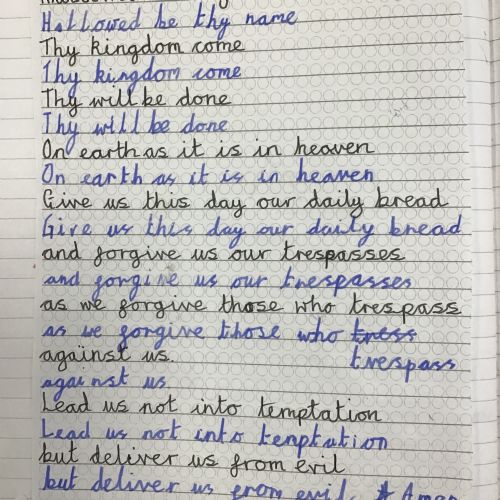 Hallowed be thy name
Thy kingdom come
Thy kingdom come
Thy will be done
Thy will be done
On earth as it is in heaven
On earth as it is in heaven
Give us this day our daily bread
Give us this day our daily bread
and forgive us our trespasses
and forgive us our trespasses
as we forgive those who trespass
as we forgive those who tress
against us. trespass
against us
Lead us not into temptation
Lead us not into temptation
but deliver us from evil
but deliver us from evil. Amen